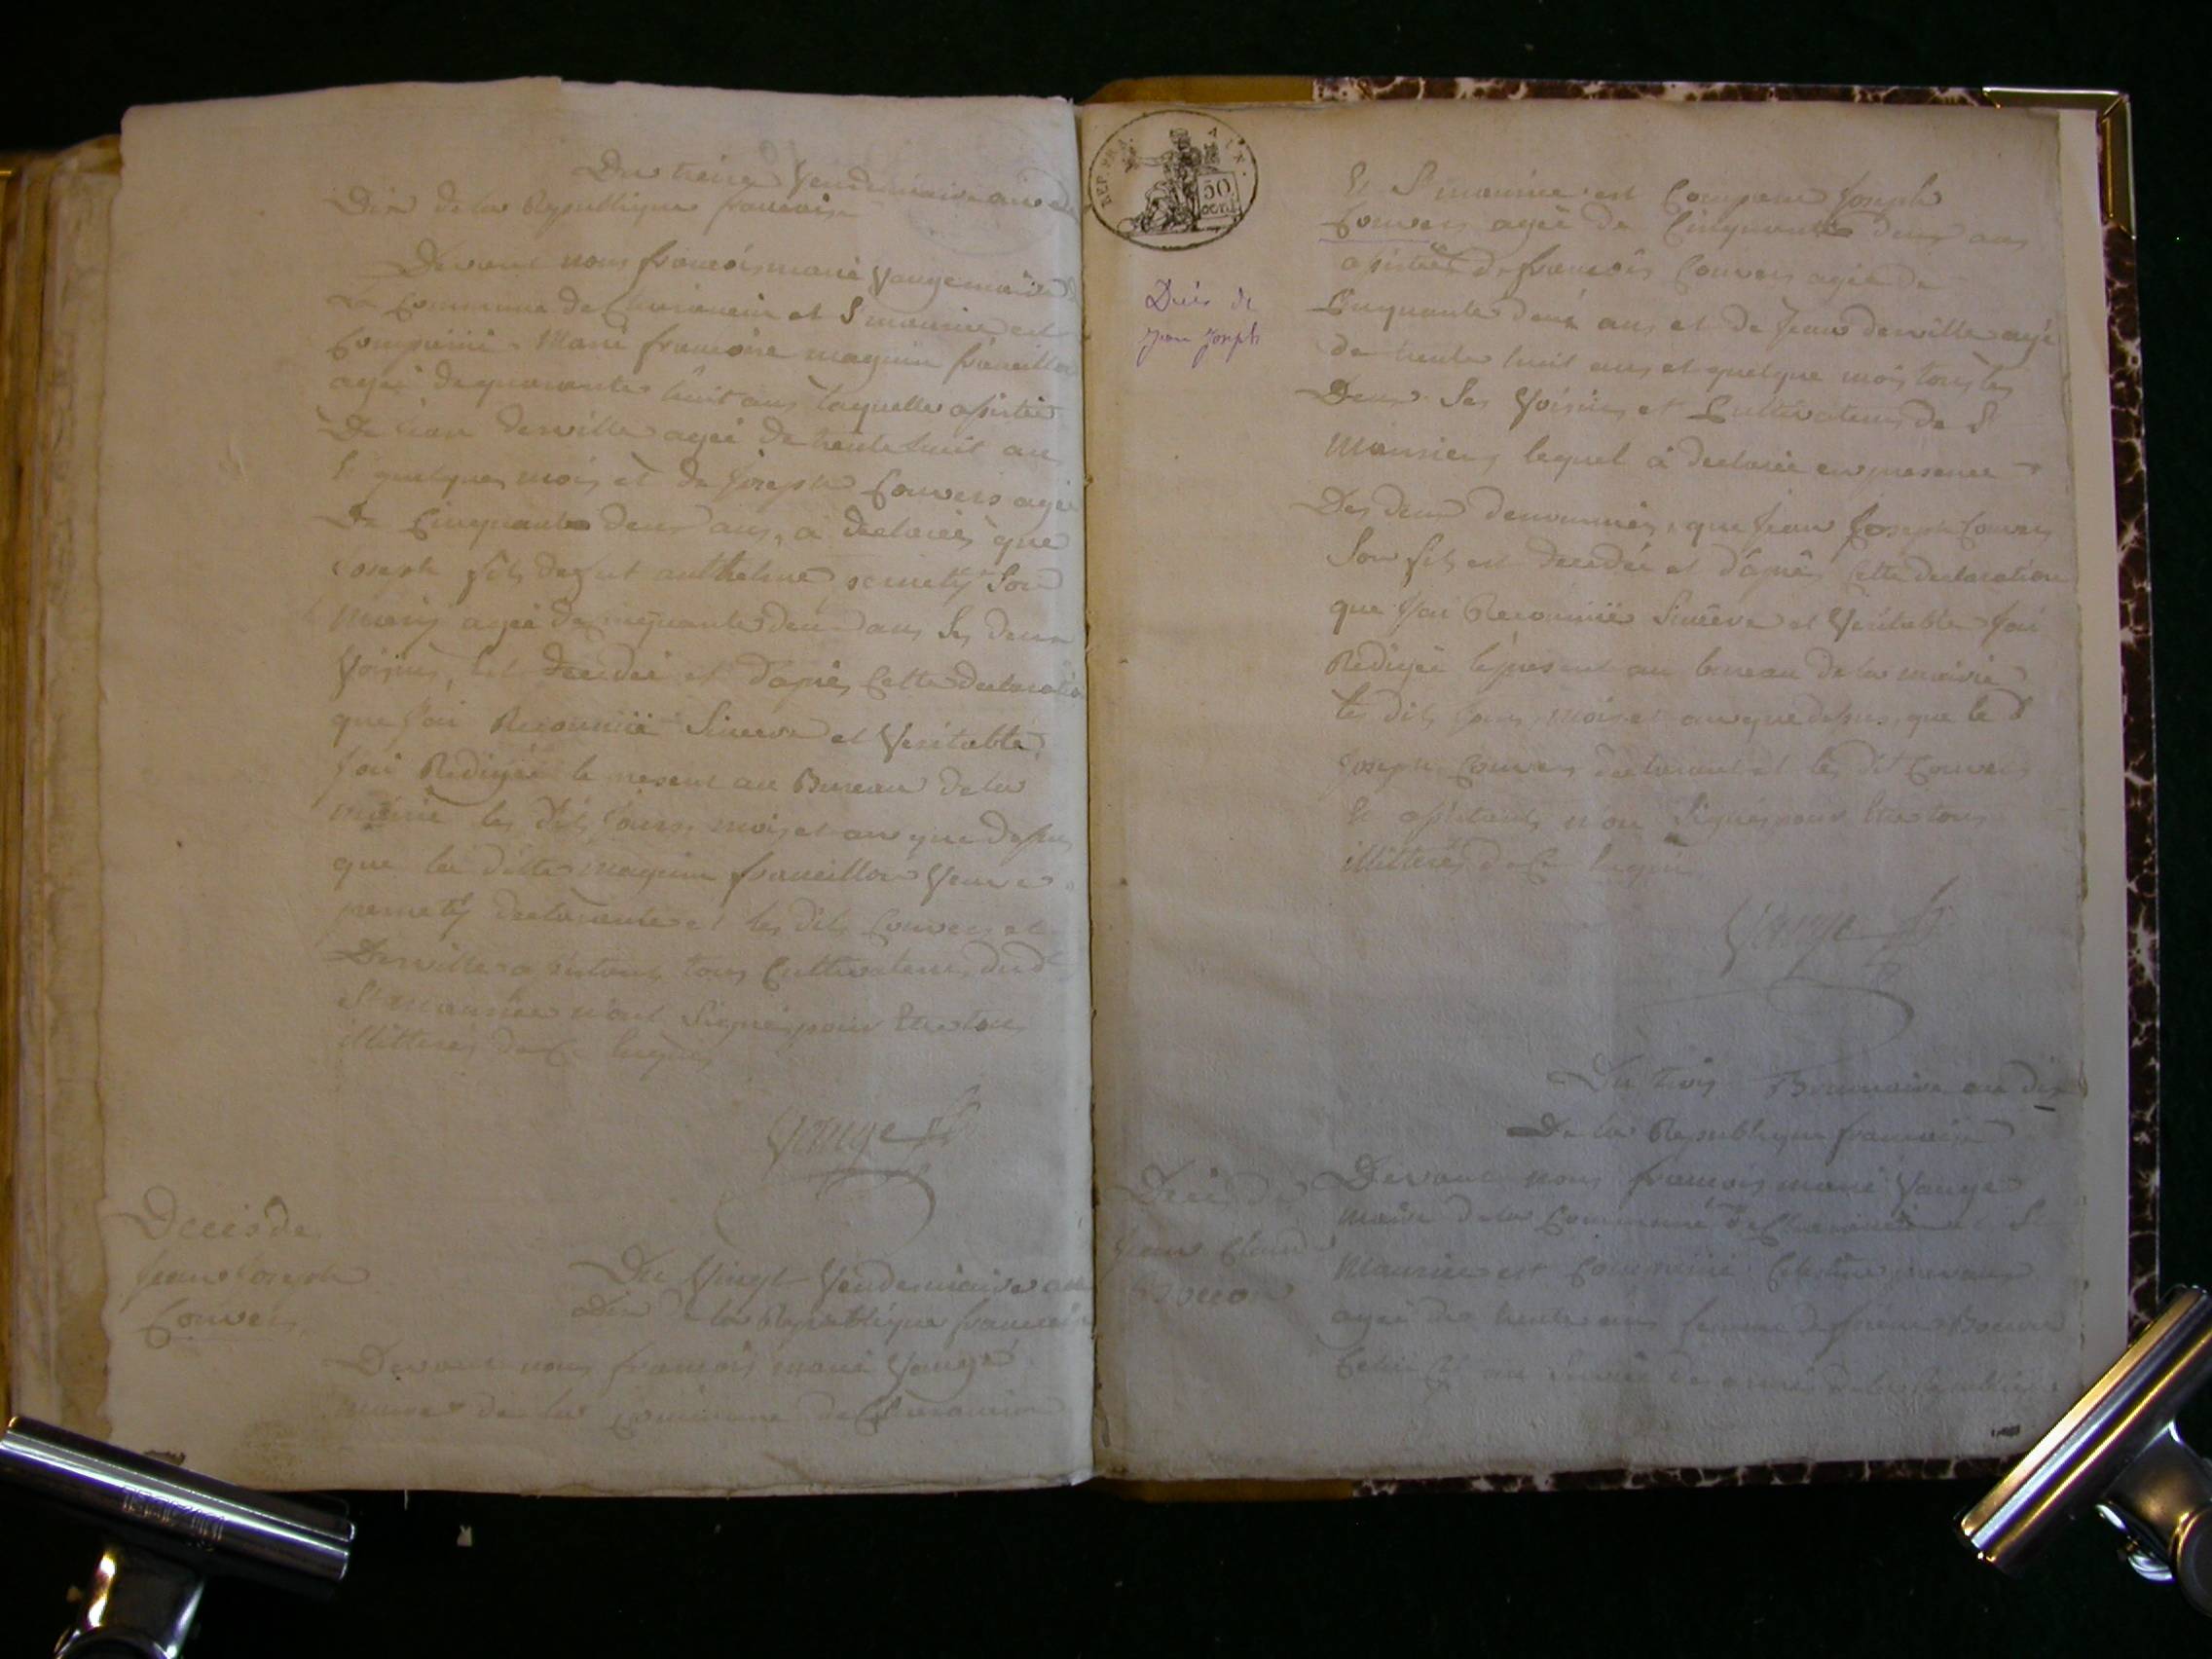 Du treize Vendemiaire an
Dix de la Republique francaise
Devant nous francois marie Vauge maire de
La Commune de et St maurice est
Comparüe Marie francoise maguin
agée de quarante huit ans laquelle assistée
De jean derville agée de trente huit ans
Et quelques mois et de joseph Convers agée
De Cinquante deux ans, a declarée que
joseph fils de fut anthelme pernety Son
maris agée de cinquante deux ans Ses deux
Voisins, Est decedée et d'après Cette declaration
que j'ai Reconnüe Sincere et Veritable
j'ai Redigée le present au Bureau de la
mairie les dits jours mois et an que dessus
que la ditte maguin Veuve
pernety declarante et les dits Convers et
Derville assistants tous Cultivateurs dud
St maurice n'ont Signés pour Etre tous
illitterés de Ce Enquis
Vauge
Decès de
jean Joseph
Convers
Du Vingt Vendemiaire an
Dix de la Republique francaise
Devant nous francois marie Vauge
maire de la Commune de
REP. FRA.
AIN.
50
cent
Décès de
jean Joseph
Et St maurice est Comparu Joseph
Convers agée de Cinquante deux ans
assistée de francois Convers agée de
Cinquante deux ans et de Jean derville agé
de trente huit ans et quelque mois tous les
Deux Ses Voisins et Cultivateurs de St
Maurice, lequel à declarée en presence
Des deux denommés, que jean Joseph Convers
Son fils est decedée et d'après Cette declaration
que j'ai Reconnüe Sincère et Veritable j'ai
Redigée le present au bureau de la mairie
les dits jours mois et an que dessus, que le d
Joseph Convers declarant et les dit Convers
Et assistants n'on Signés pour Etre tous
illitterés de Ce Enquis
Vauge
Du trois Brumaire an dix
De la Republique francaise
Decès de
jean Claude
Devant nous francois marie Vauge
Maire de la Commune de et St
Maurice est Comparüe
agée de trente ans femme de
au service de